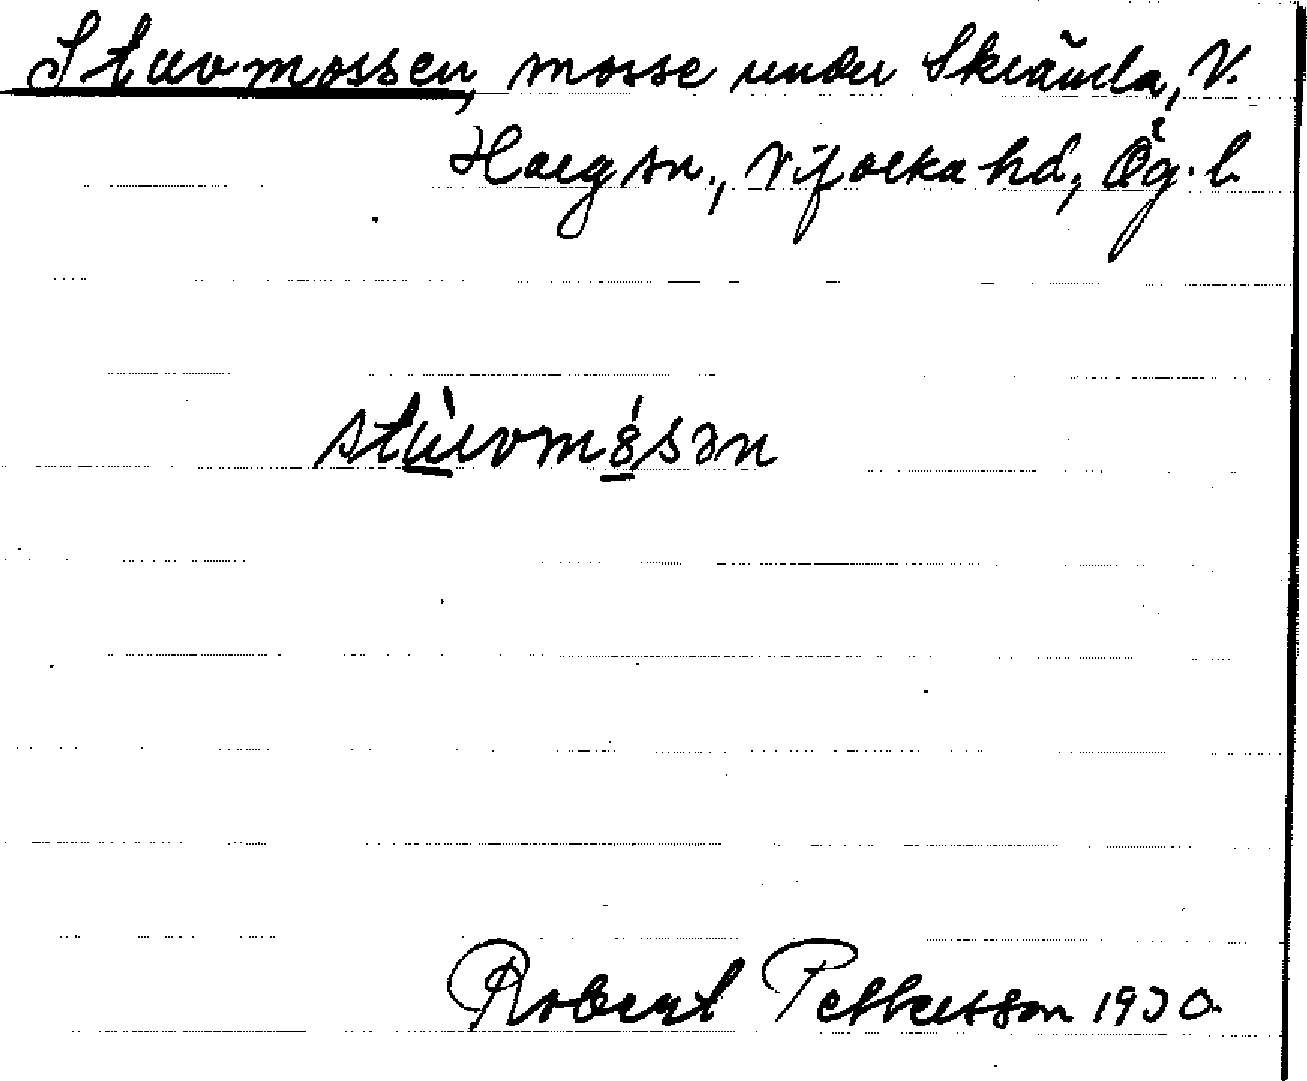 Stuvmossen, mosse under Skrända, V.
Harg sn., Vifolka hd, Ög. l.
Robert Pettersson 1930.